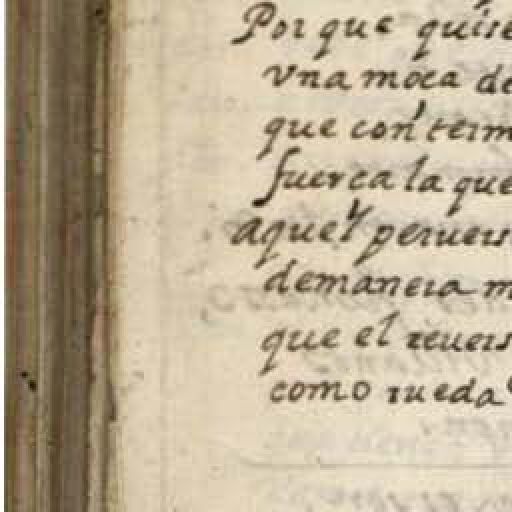 Por que quise
vna moca de
que con term
fuerca la que
aquel peruers
demanera m
que el reuers
como rueda